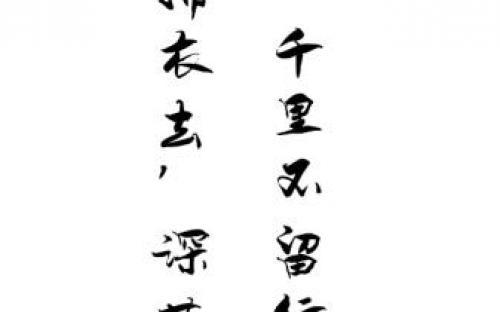 千里不留行
衣去,深